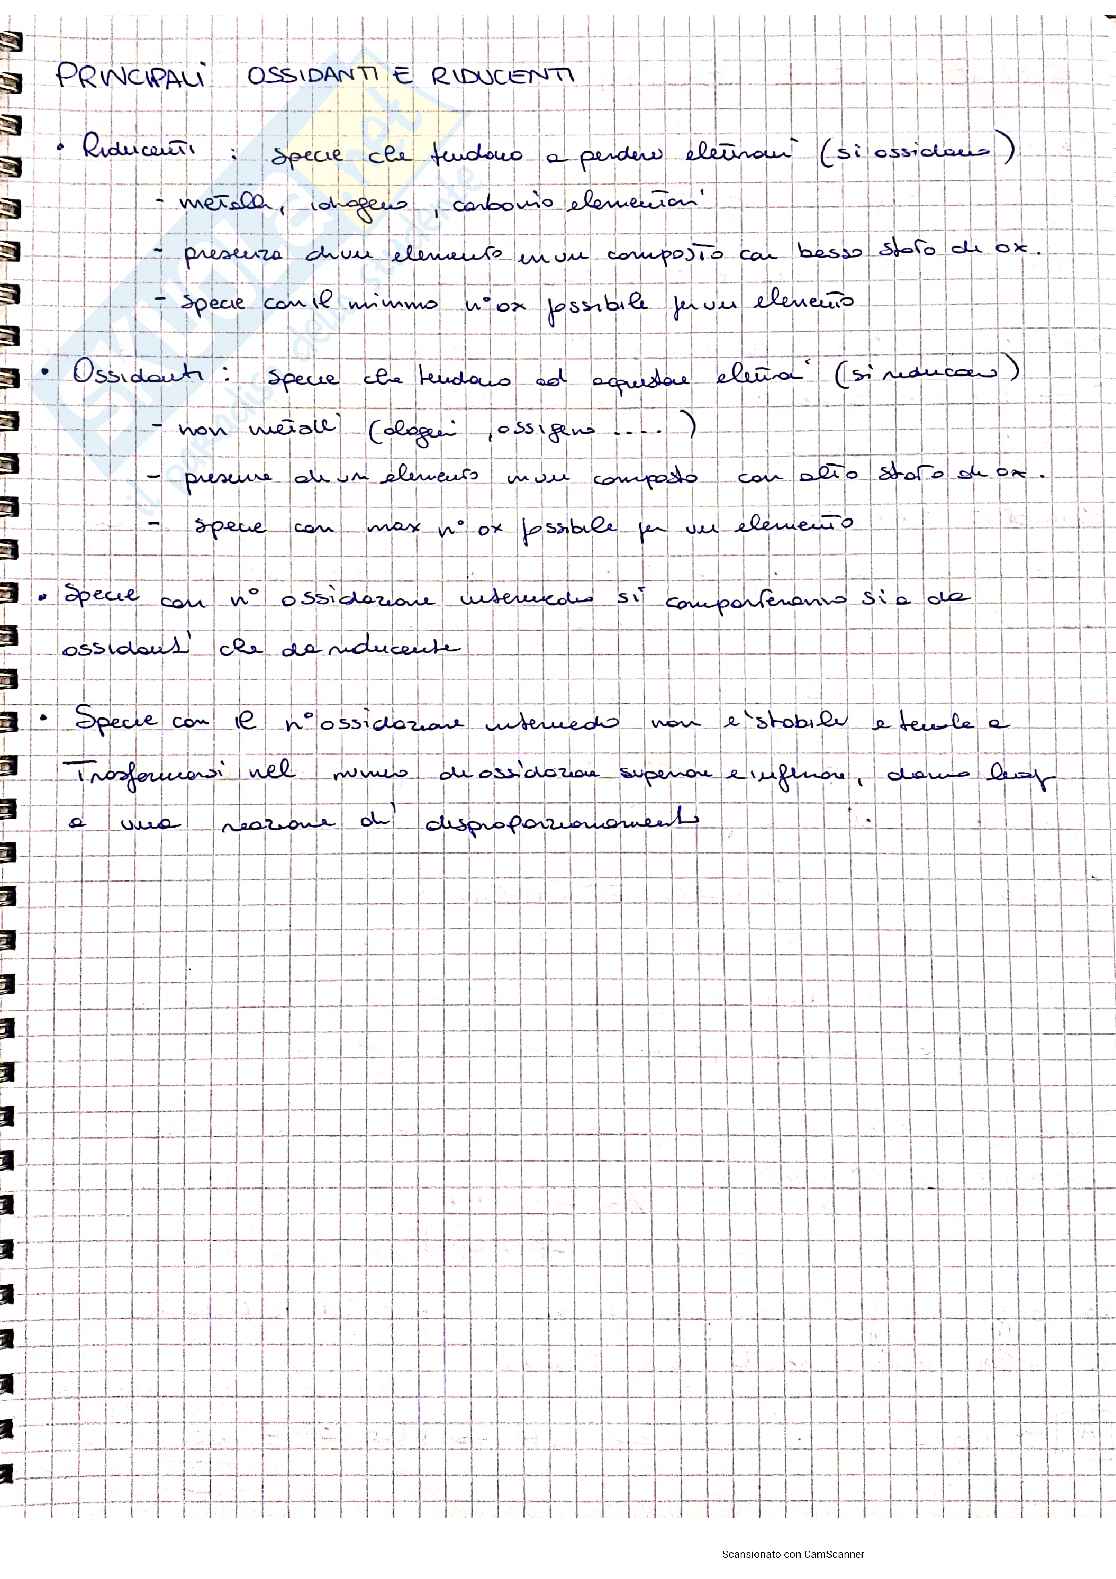 PRINCIPALI OSSIDANTI E RIDUCENTI
• Riducenti : specie che tendono a perdere elettroni (si ossidano)
- metalli, idrogeno, carbonio elementari
- presenza di un elemento in un composto con basso stato di ox.
- specie con il minimo n° ox possibile per un elemento
• Ossidanti : specie che tendono ad acquistare elettroni (si riducono)
- non metalli (alogeni, ossigeno ....)
- presenza di un elemento in un composto con alto stato di ox.
- specie con max n° ox possibile per un elemento
• Specie con n° ossidazione intermedio si comporteranno sia da
ossidanti che da riducente
• Specie con il n° ossidazione intermedio non è stabile e tende a
Trasformarsi nel numero di ossidazione superiore e inferiore, danno
a una reazione di disproporzionamento
Scansionato con CamScanner